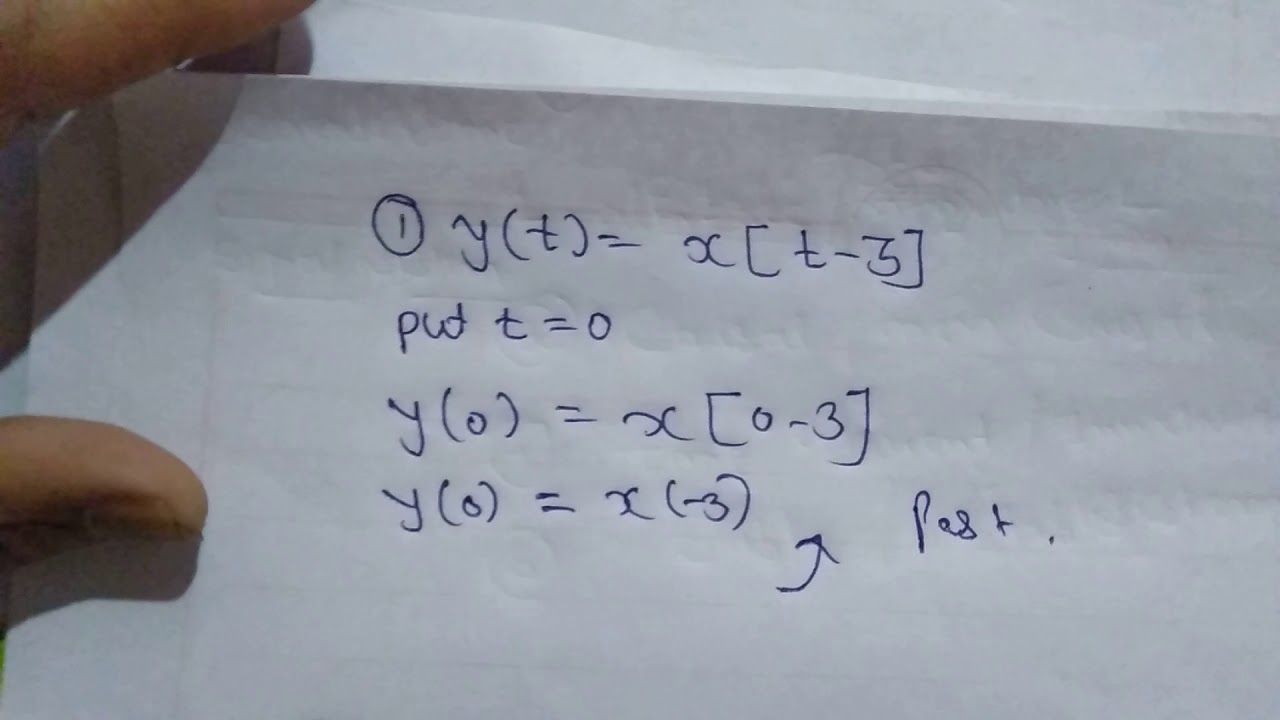 ① y(t) = x[t-3]
put t = 0
y(0) = x[0-3]
y(0) = x(-3) Past.